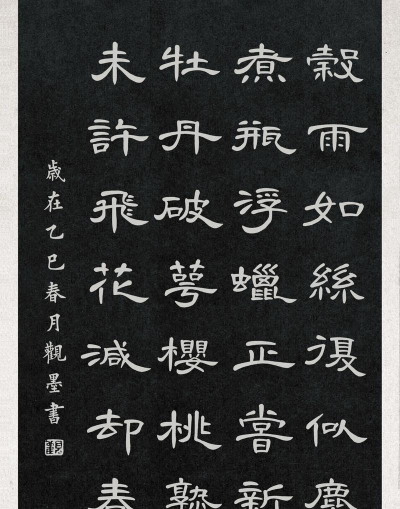 穀雨如絲復似塵
煮瓶浮蠟正嘗新
牡丹破萼櫻桃熟
未許飛花減却春
歲在乙巳春月觀墨書